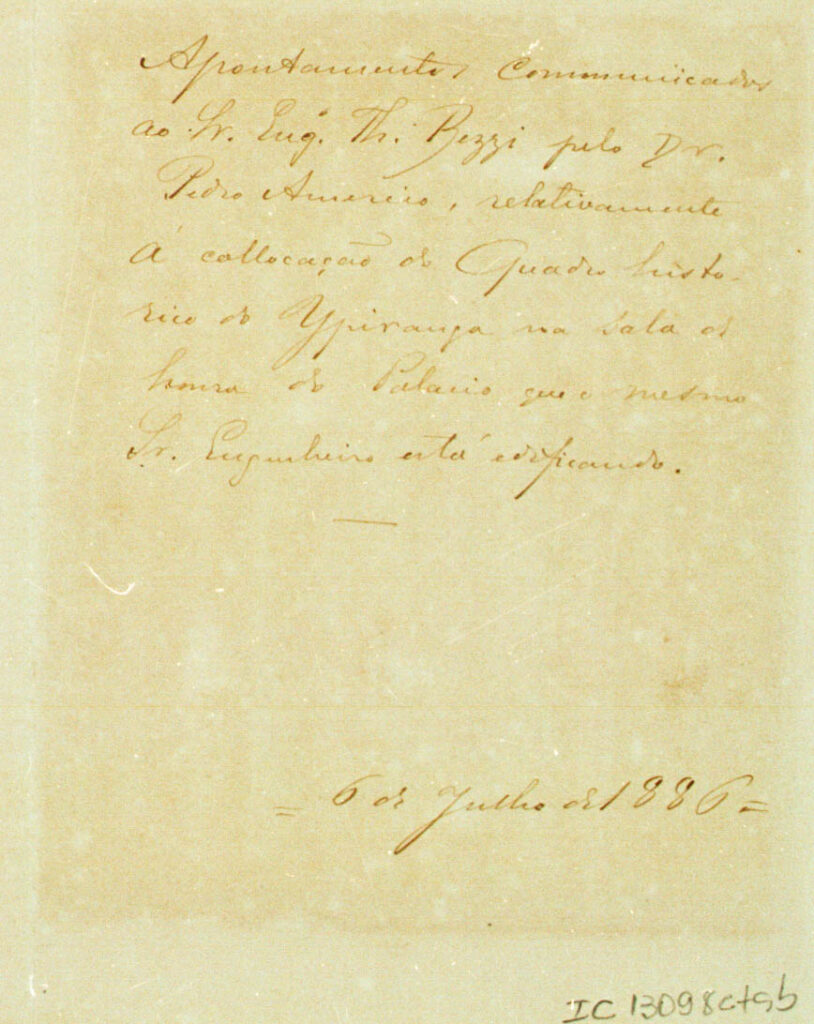 Apontamentos communicados
ao Sr. Eng.º Th. Bezzi pelo Dr.
Pedro Americo, relativamente
á collocação do Quadro histo-
rico do Ypiranga na sala de
honra do Palacio que o mesmo
Sr. Engenheiro está edificando.
= 6 de Julho de 1886 =
IC 13098